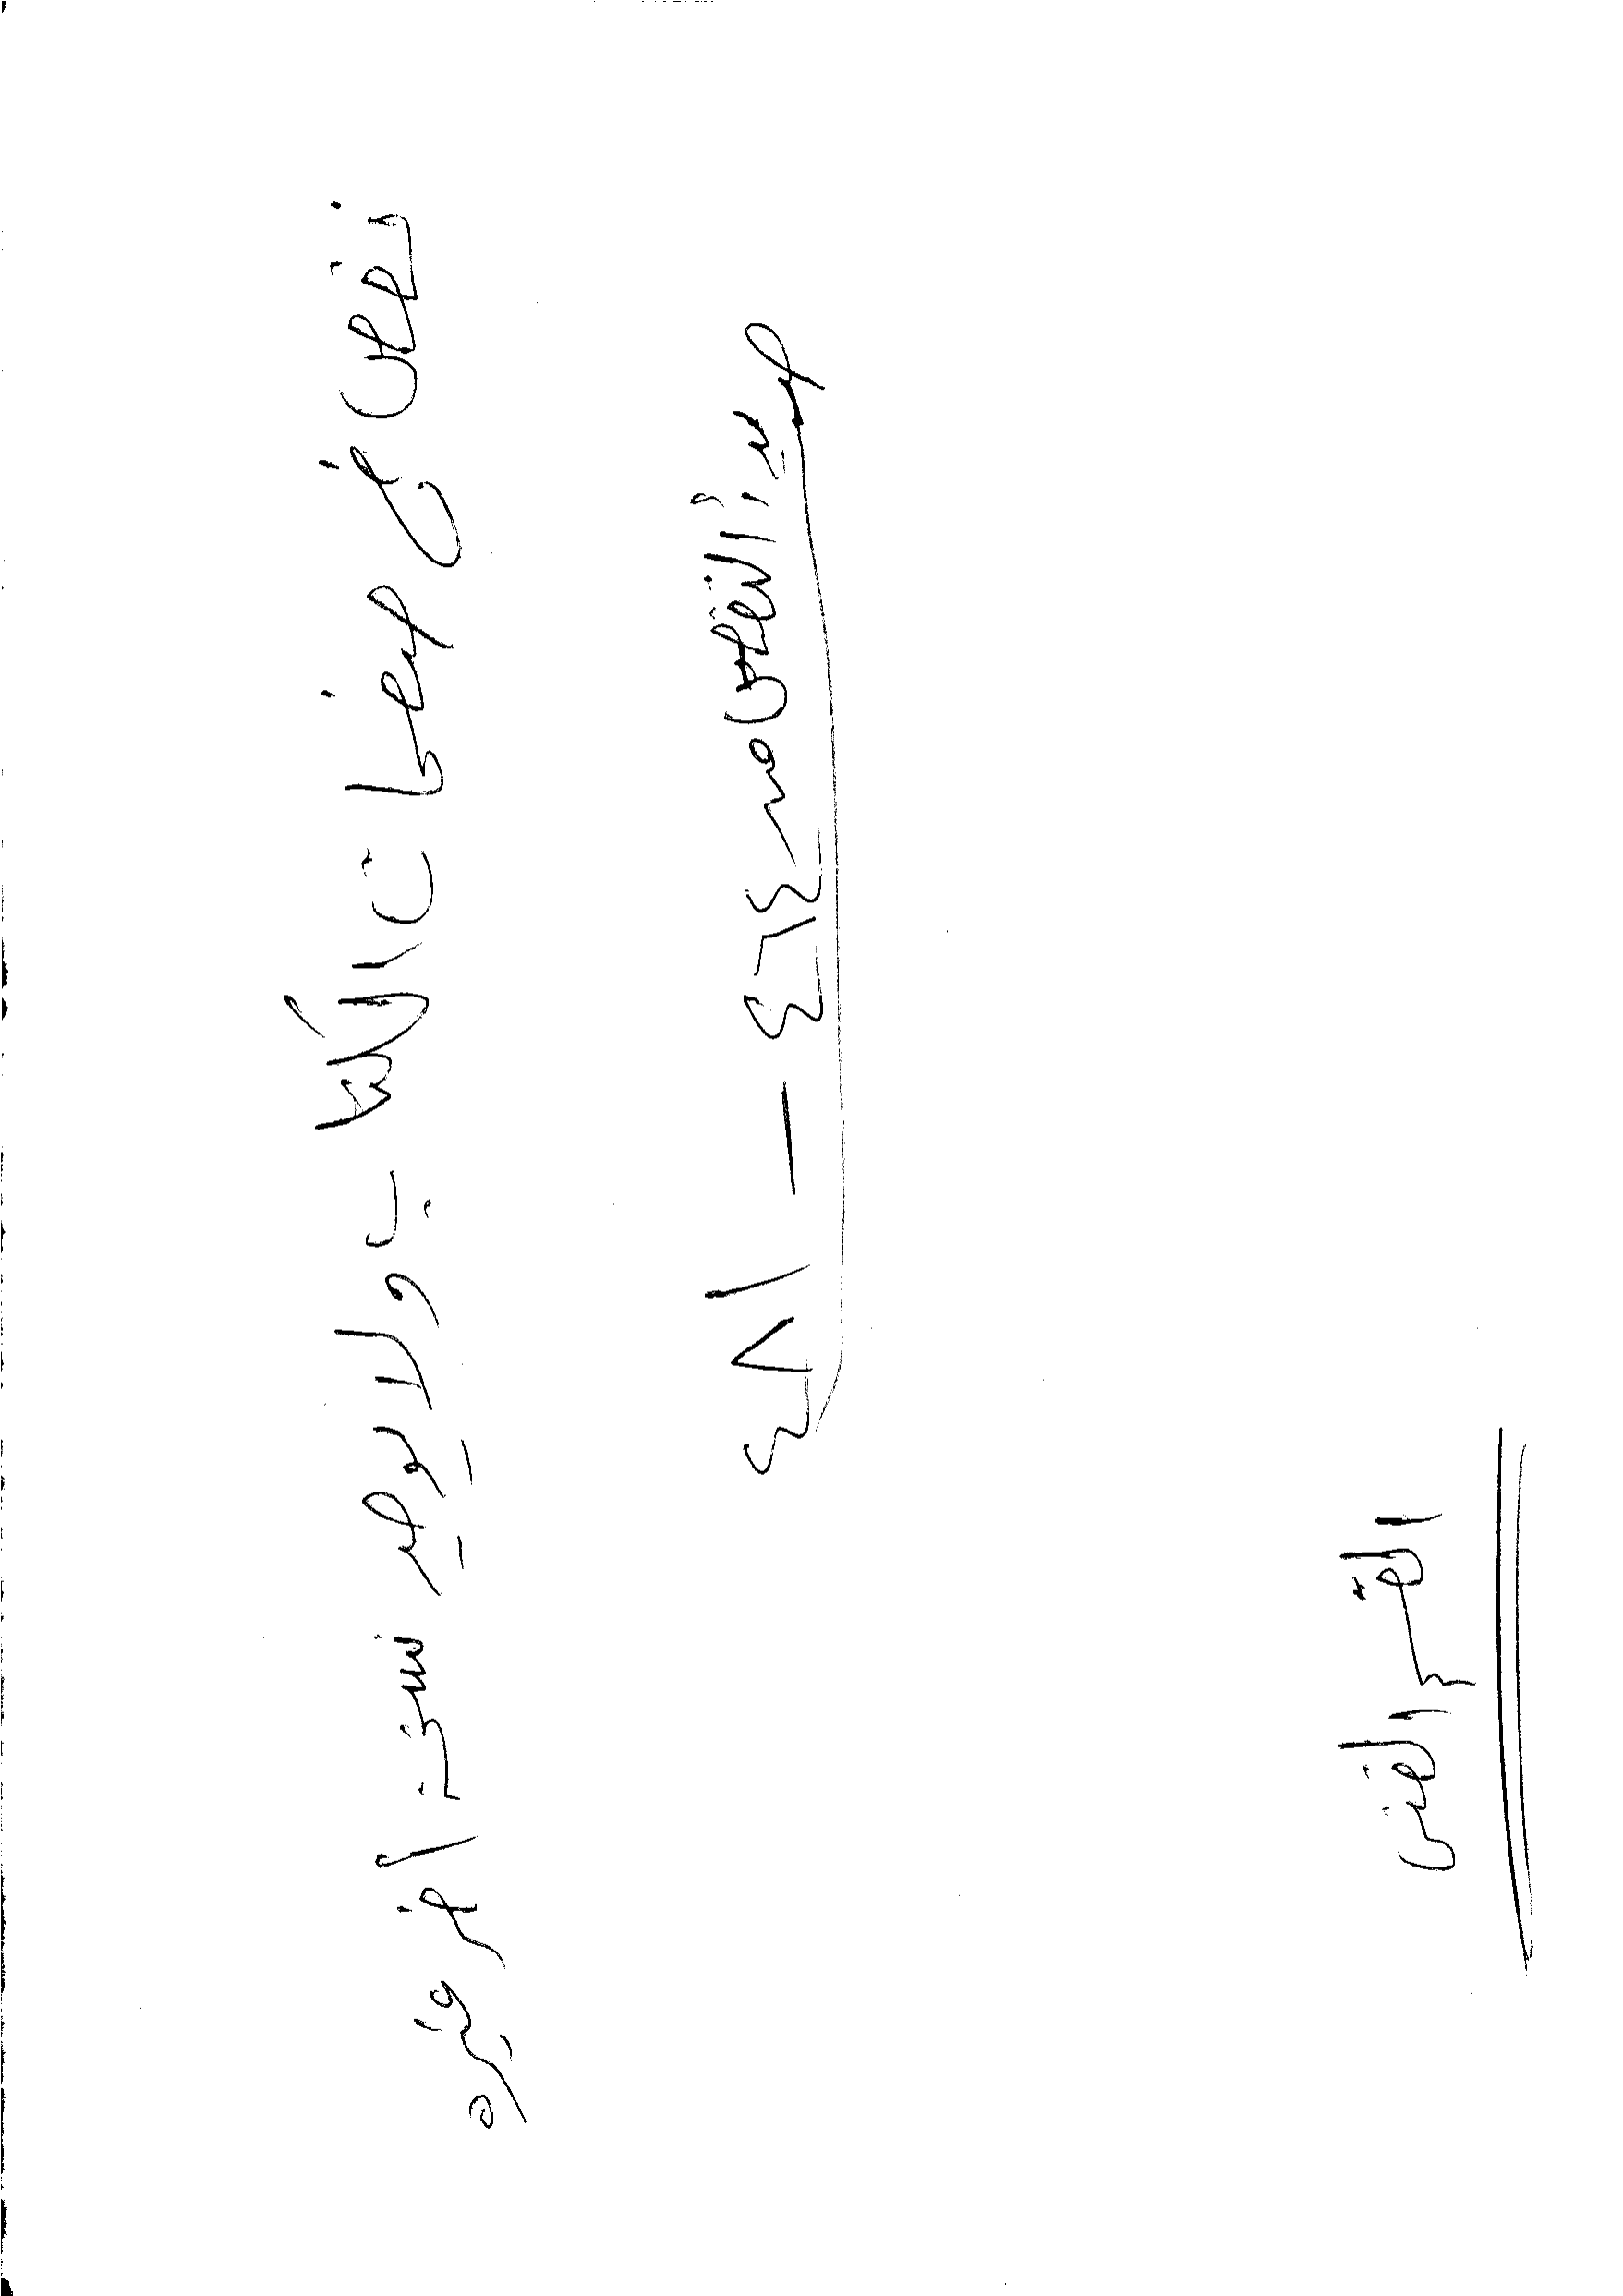 نقص في صفحات الكتاب ولا يوجد نسخة أخرى غيره
صفحة النقص من ٤٦٤ — ٤٨١
القسم الفني